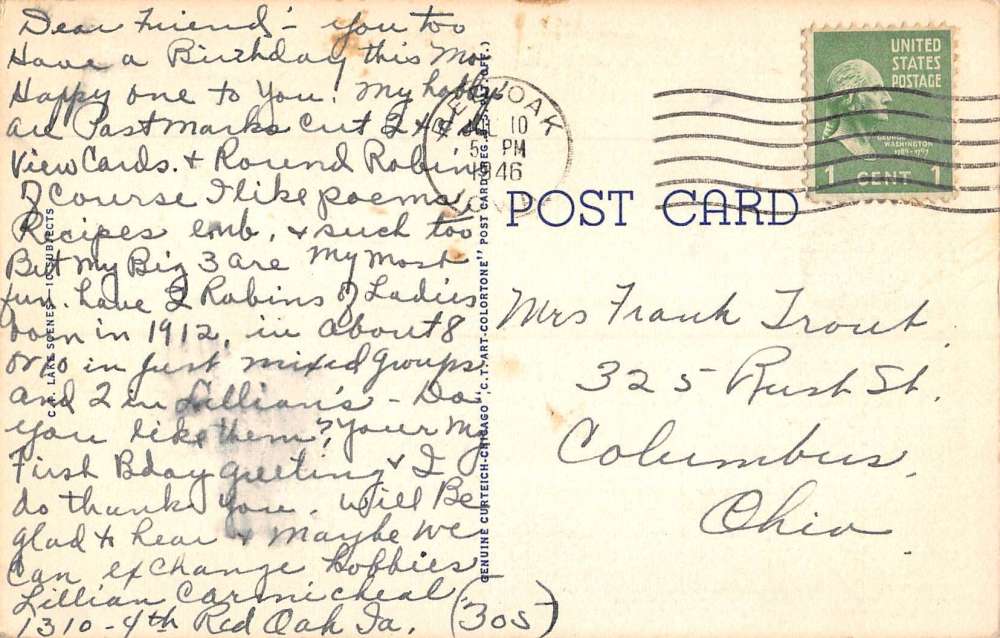 Dear Friend - you too
Have a Birthday this Mo
Happy one to You! My hobbys
are Postmarks Cut 2 x 4 or
View Cards. & Round Robins
Of Course I like poems,
Recipes emb. & such too
But My Big 3 are My most
fun. have 2 Robins of Ladies
born in 1912, in about 8
or 10 in just mixed groups
and 2 in Lillian's - Do
you like them? Your My
First Bday greeting & I
do thank you. Will Be
glad to hear & Maybe We
Can exchange hobbies
Lillian Carmicheal,
1310-4th Red Oak Ia. (305)
C.T. LAKE SCENES—10 SUBJECTS
GENUINE CURTEICH-CHICAGO "C.T. ART-COLORTONE" POST CARD (REG. U.S. PAT. OFF.)
RED OAK
JUL 10
5 PM
1946
UNITED
STATES
POSTAGE
GEORGE
WASHINGTON
1789-1797
1 CENT 1
POST CARD
Mrs Frank Trout.
325 Rush St.
Columbus,
Ohio